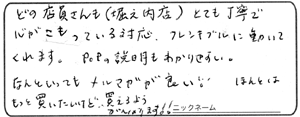 どの店員さんも(堀之内店)とても丁寧で
心がこもっている対応、フレキシブルに動いて
くれます。POPの説明もわかりやすい。
なんといってもメルマガが良い!! ほんとは
もっと買いたいけど、買えるよう
がんばります!! ニックネーム